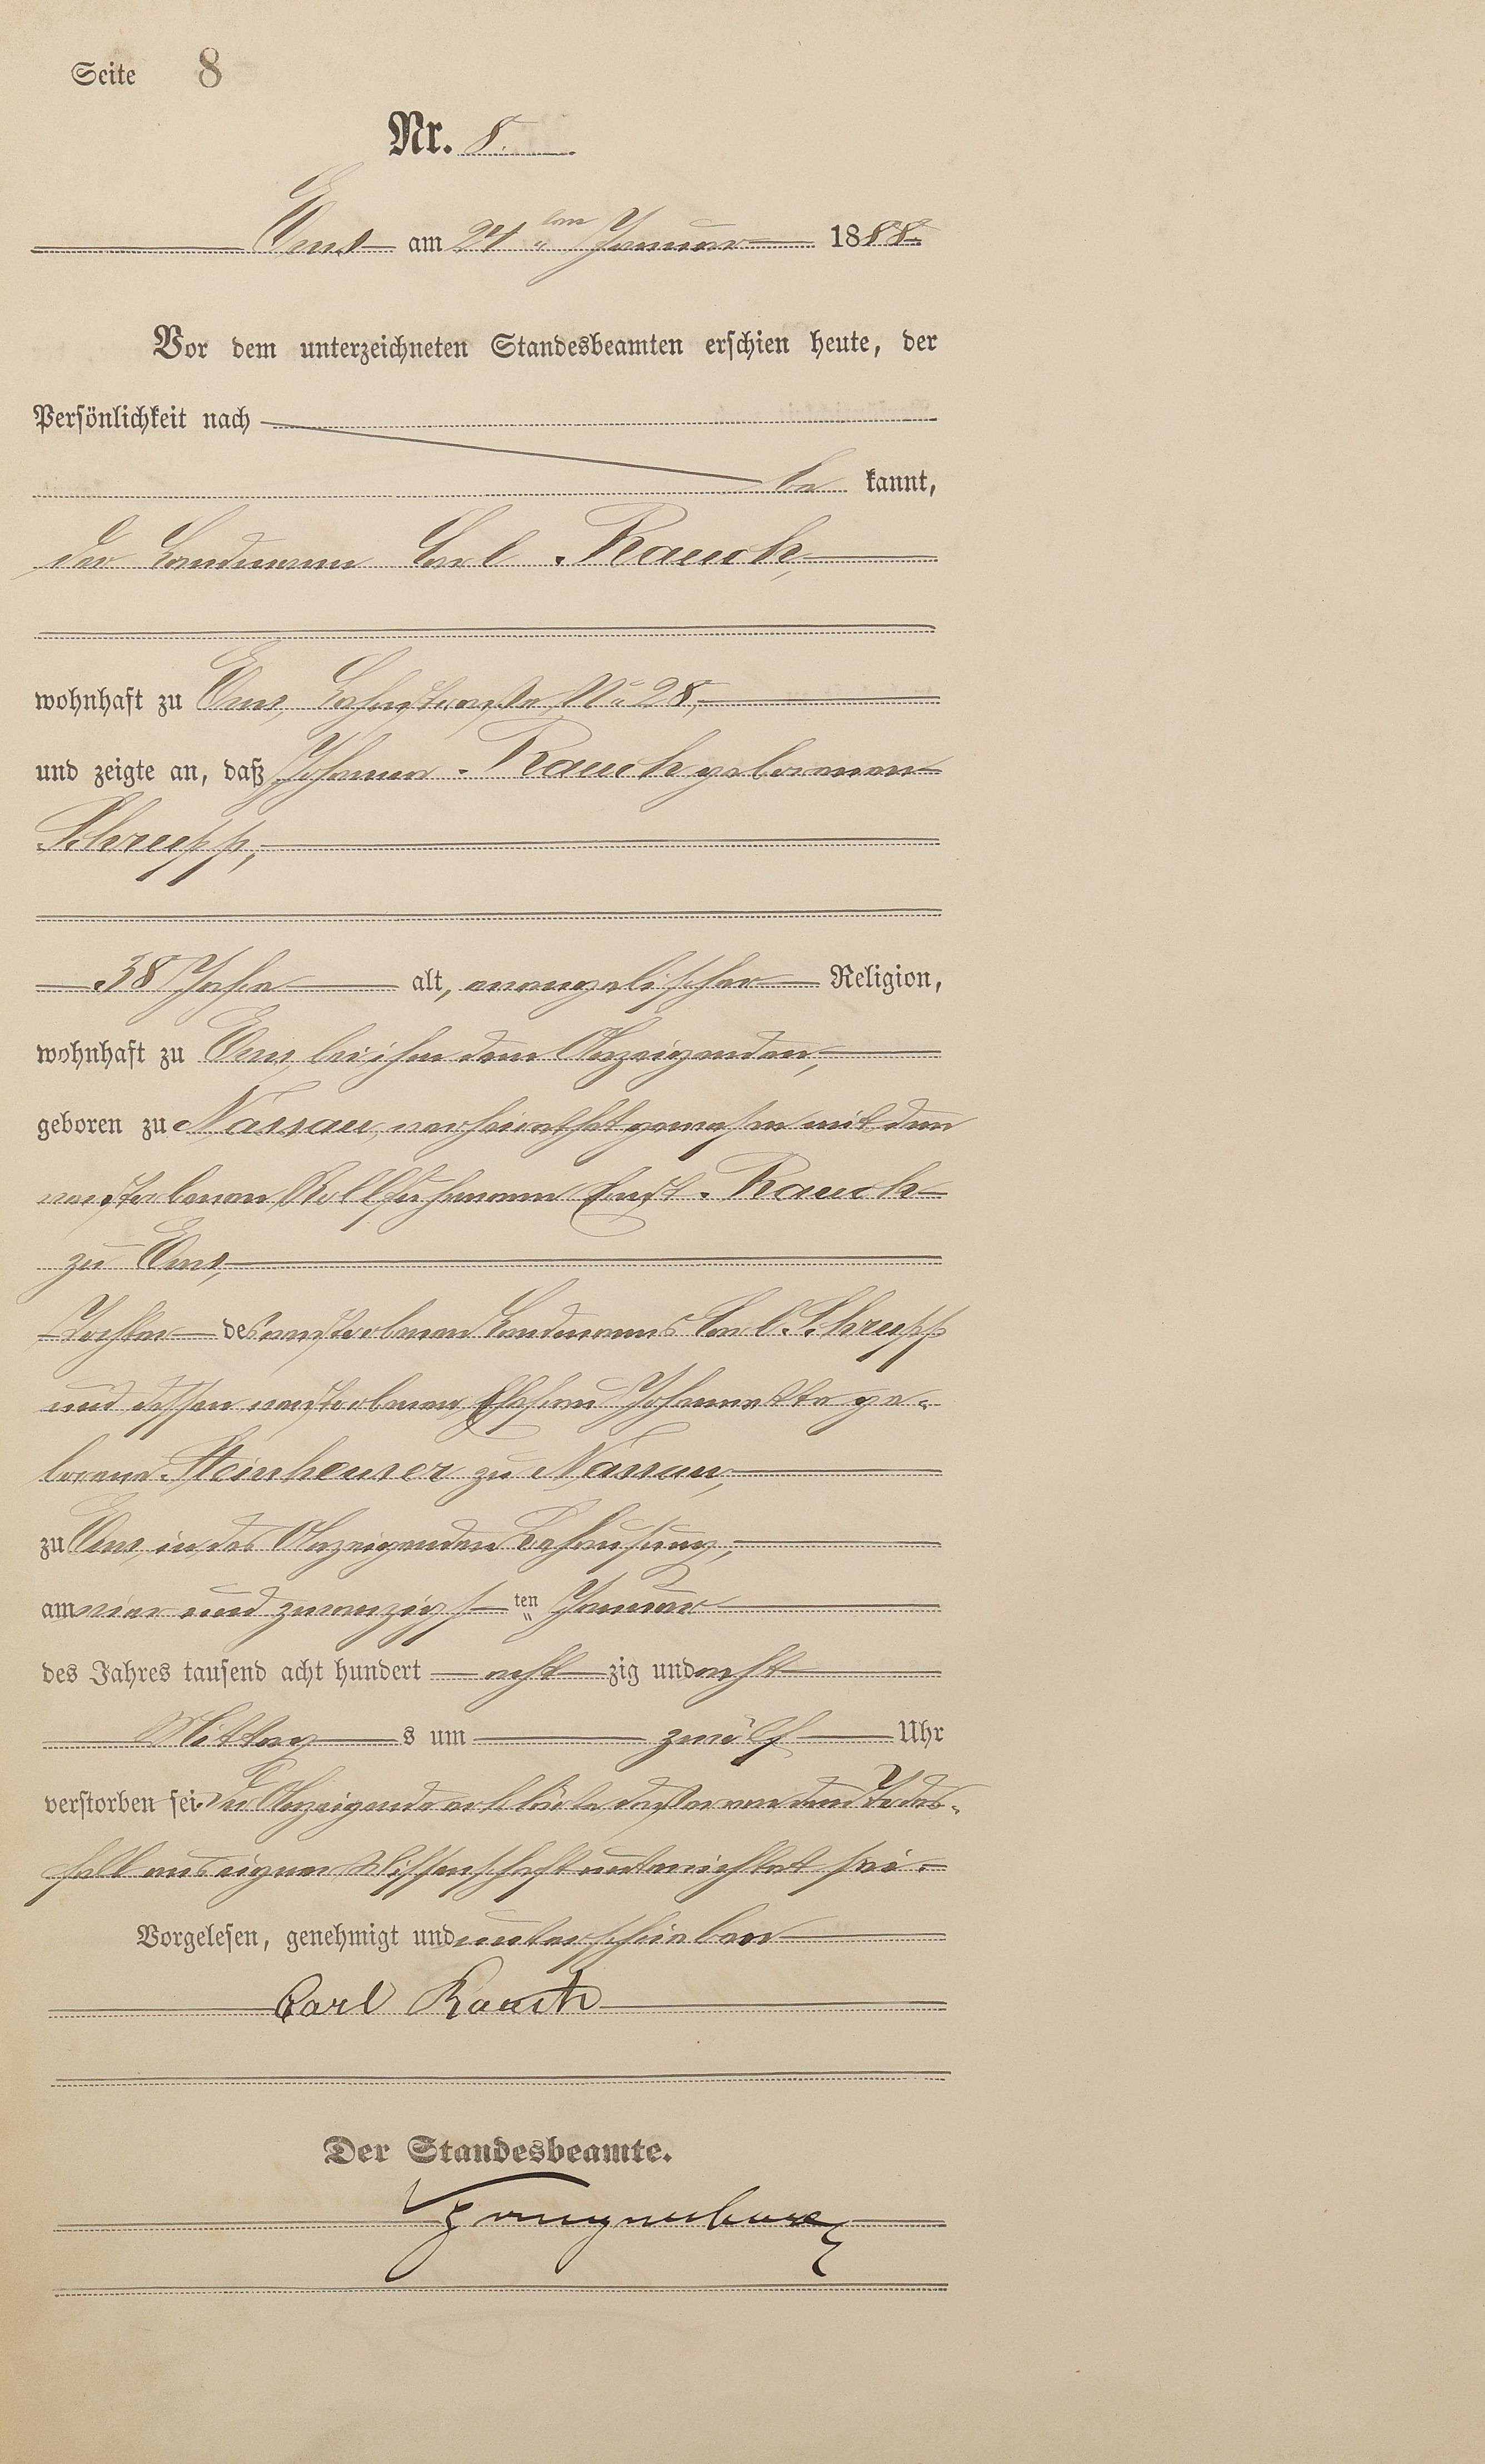 Seite 8
Nr. 8.
Ems am 24 ten Januar 1888.
Vor dem unterzeichneten Standesbeamten erschien heute, der
Persönlichkeit nach
be kannt,
der Landmann Carl Rauch,
wohnhaft zu Ems, Lahnstraße No 28,
und zeigte an, daß Johanna Rauch geborenen
Schrupp,
38 Jahre alt, evangelischer Religion,
wohnhaft zu Ems, bei ihm dem Anzeigenden,
geboren zu Nassau, verheirathet gewesen mit dem
verstorbenen Rollfuhrmann Rauch
zu Ems,
Tochter des verstorbenen Landmanns Carl Schrupp
und dessen verstorbenen Ehefrau Johannette ge-
borene Steinheuser zu Nassau,
zu Ems, in des Anzeigenden Behausung,
am vier und zwanzigs ten Januar
des Jahres tausend acht hundert acht zig und acht
Mittag s um zwölf Uhr
verstorben sei. Der Anzeigende erklärte daß er von dem Todes-
fall aus eigener Wissenschaft unterrichtet sei.
Vorgelesen, genehmigt und unterschrieben
Carl Rauch
Der Standesbeamte.